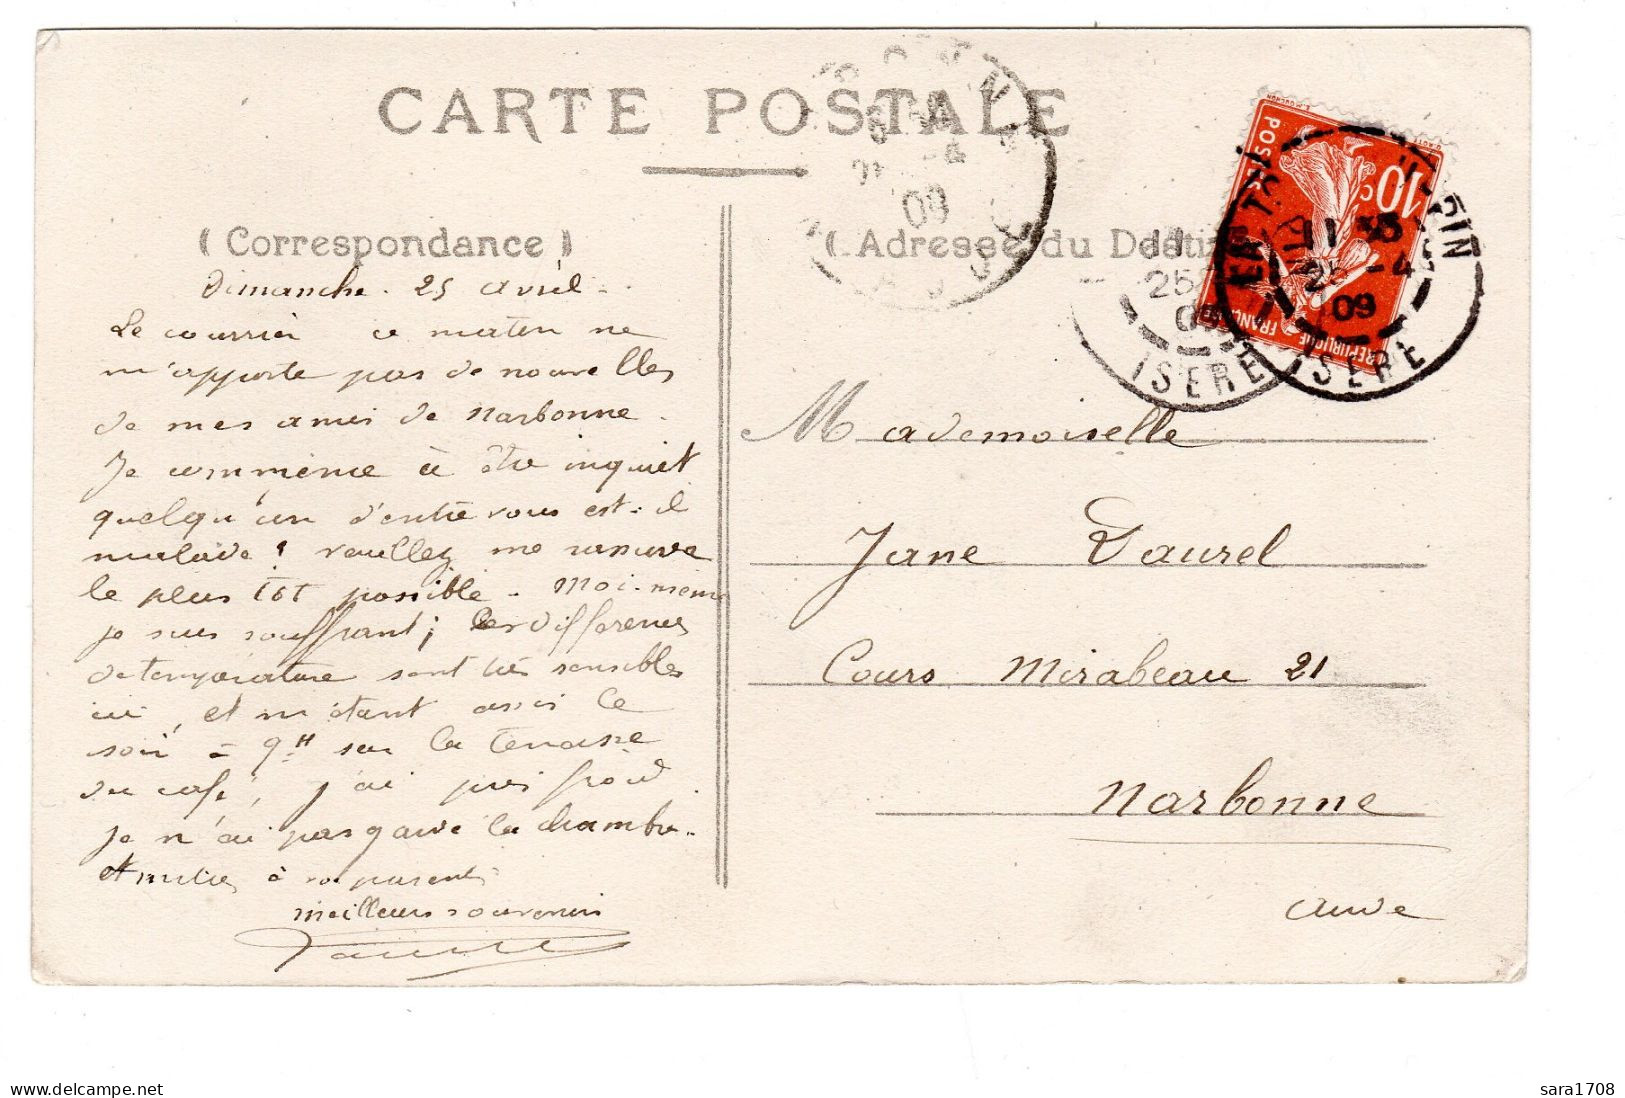 CARTE POSTALE
( Correspondance )
Dimanche. 25 avril.
Le courrier ce matin ne
m'apporte pas de nouvelles
de mes amis de Narbonne.
Je commence à être inquiet
quelqu'un d'entre vous est-il
malade? veuillez me rassurer
le plus tôt possible. Moi-même
je suis souffrant; les différences
de température sont très sensibles
ici, et m'étant assis ce
soir - 9H sur la terrasse
du café, j'ai pris froid
Je n'ai pas gardé la chambre.
Amitiés à vos parents
meilleurs souvenirs
( Adresse du Destin
Mademoiselle
Jane Daurel
Cours Mirabeau 21
Narbonne
Aude
POSTES
10c
REPUBLIQUE FRANC
11 35
25 -4
09
ISERE
25
09
ISERE
09
sara1708